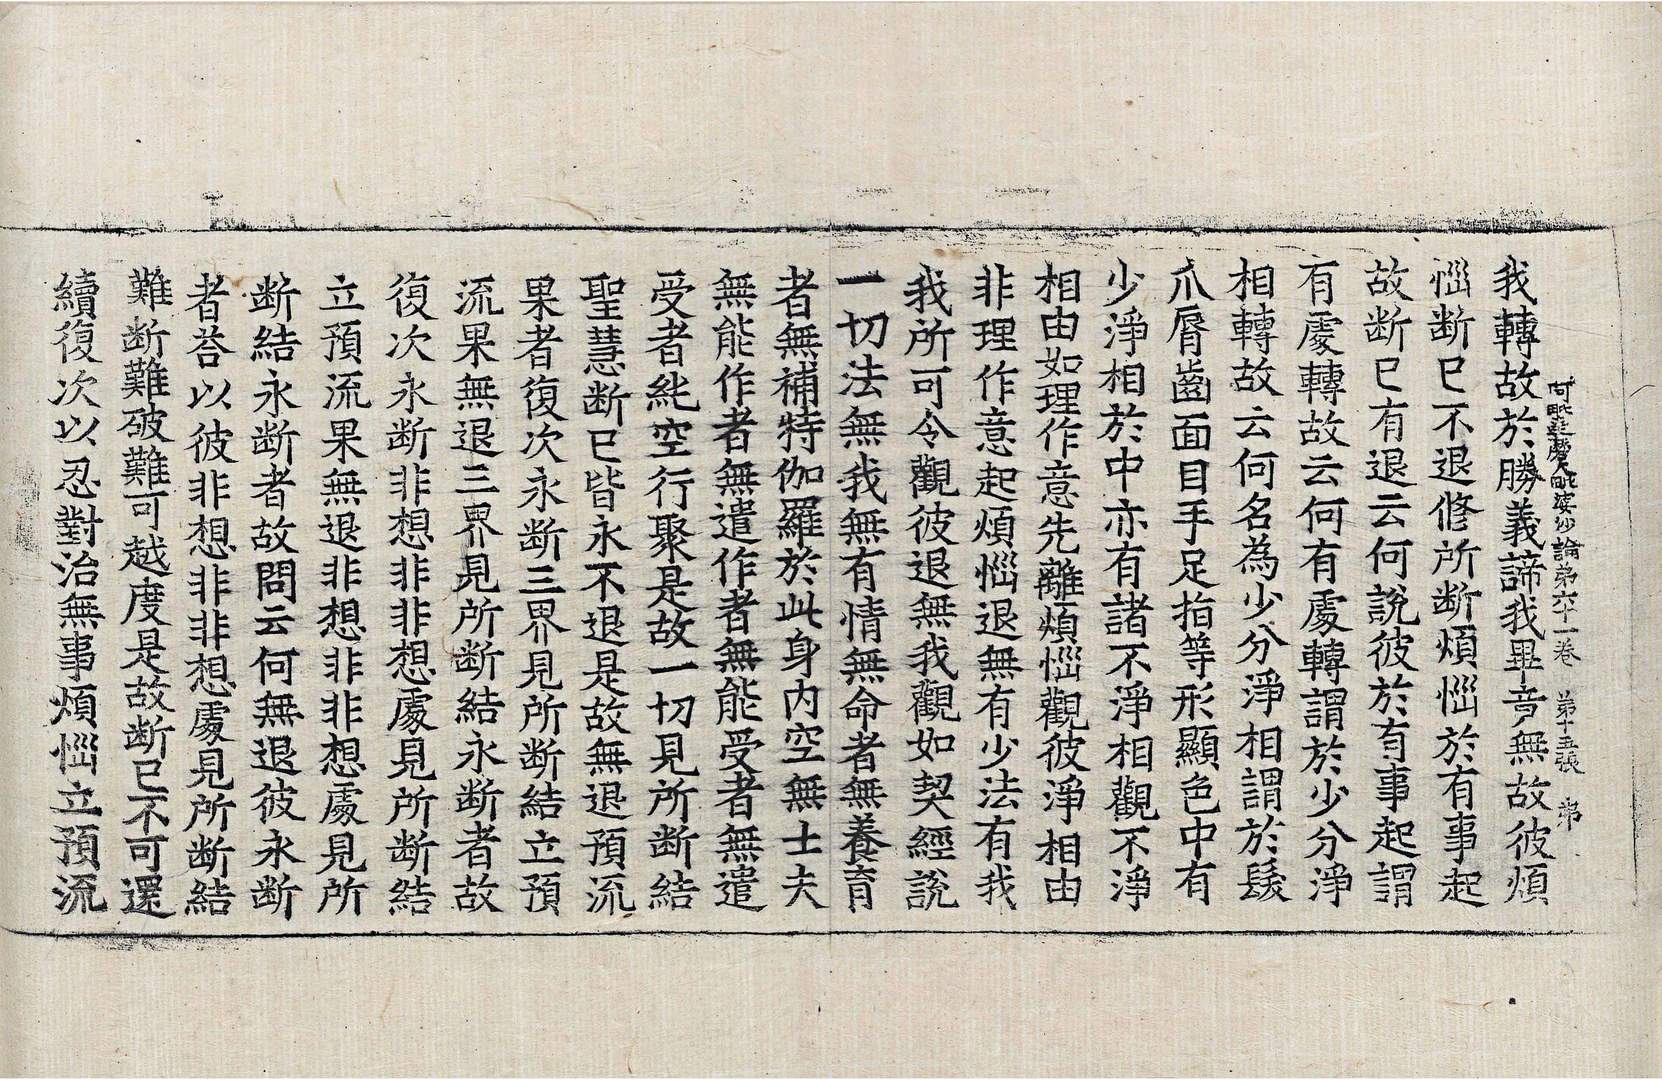 阿毗達磨大毗婆沙論第六十一卷 第十五張 弟
我轉故於勝義諦我畢竟無故彼煩
惱断已不退修所断煩惱於有事起
故断已有退云何說彼於有事起謂
有處轉故云何有處轉謂於少分淨
相轉故云何名為少分淨相謂於髮
爪脣齒面目手足指等形顯色中有
少淨相於中亦有諸不淨相觀不淨
相由如理作意先離煩惱觀彼淨相由
非理作意起煩惱退無有少法有我
我所可令觀彼退無我觀如契經說
一切法無我無有情無命者無養育
者無補特伽羅於此身內空無士夫
無能作者無遣作者無能受者無遣
受者純空行聚是故一切見所断結
聖慧断已皆永不退是故無退預流
果者復次永断三界見所断結立預
流果無退三界見所断結永断者故
復次永断非想非非想處見所断結
立預流果無退非想非非想處見所
断結永断者故問云何無退彼永断
者荅以彼非想非非想處見所断結
難断難破難可越度是故断已不可還
續復次以忍對治無事煩惱立預流